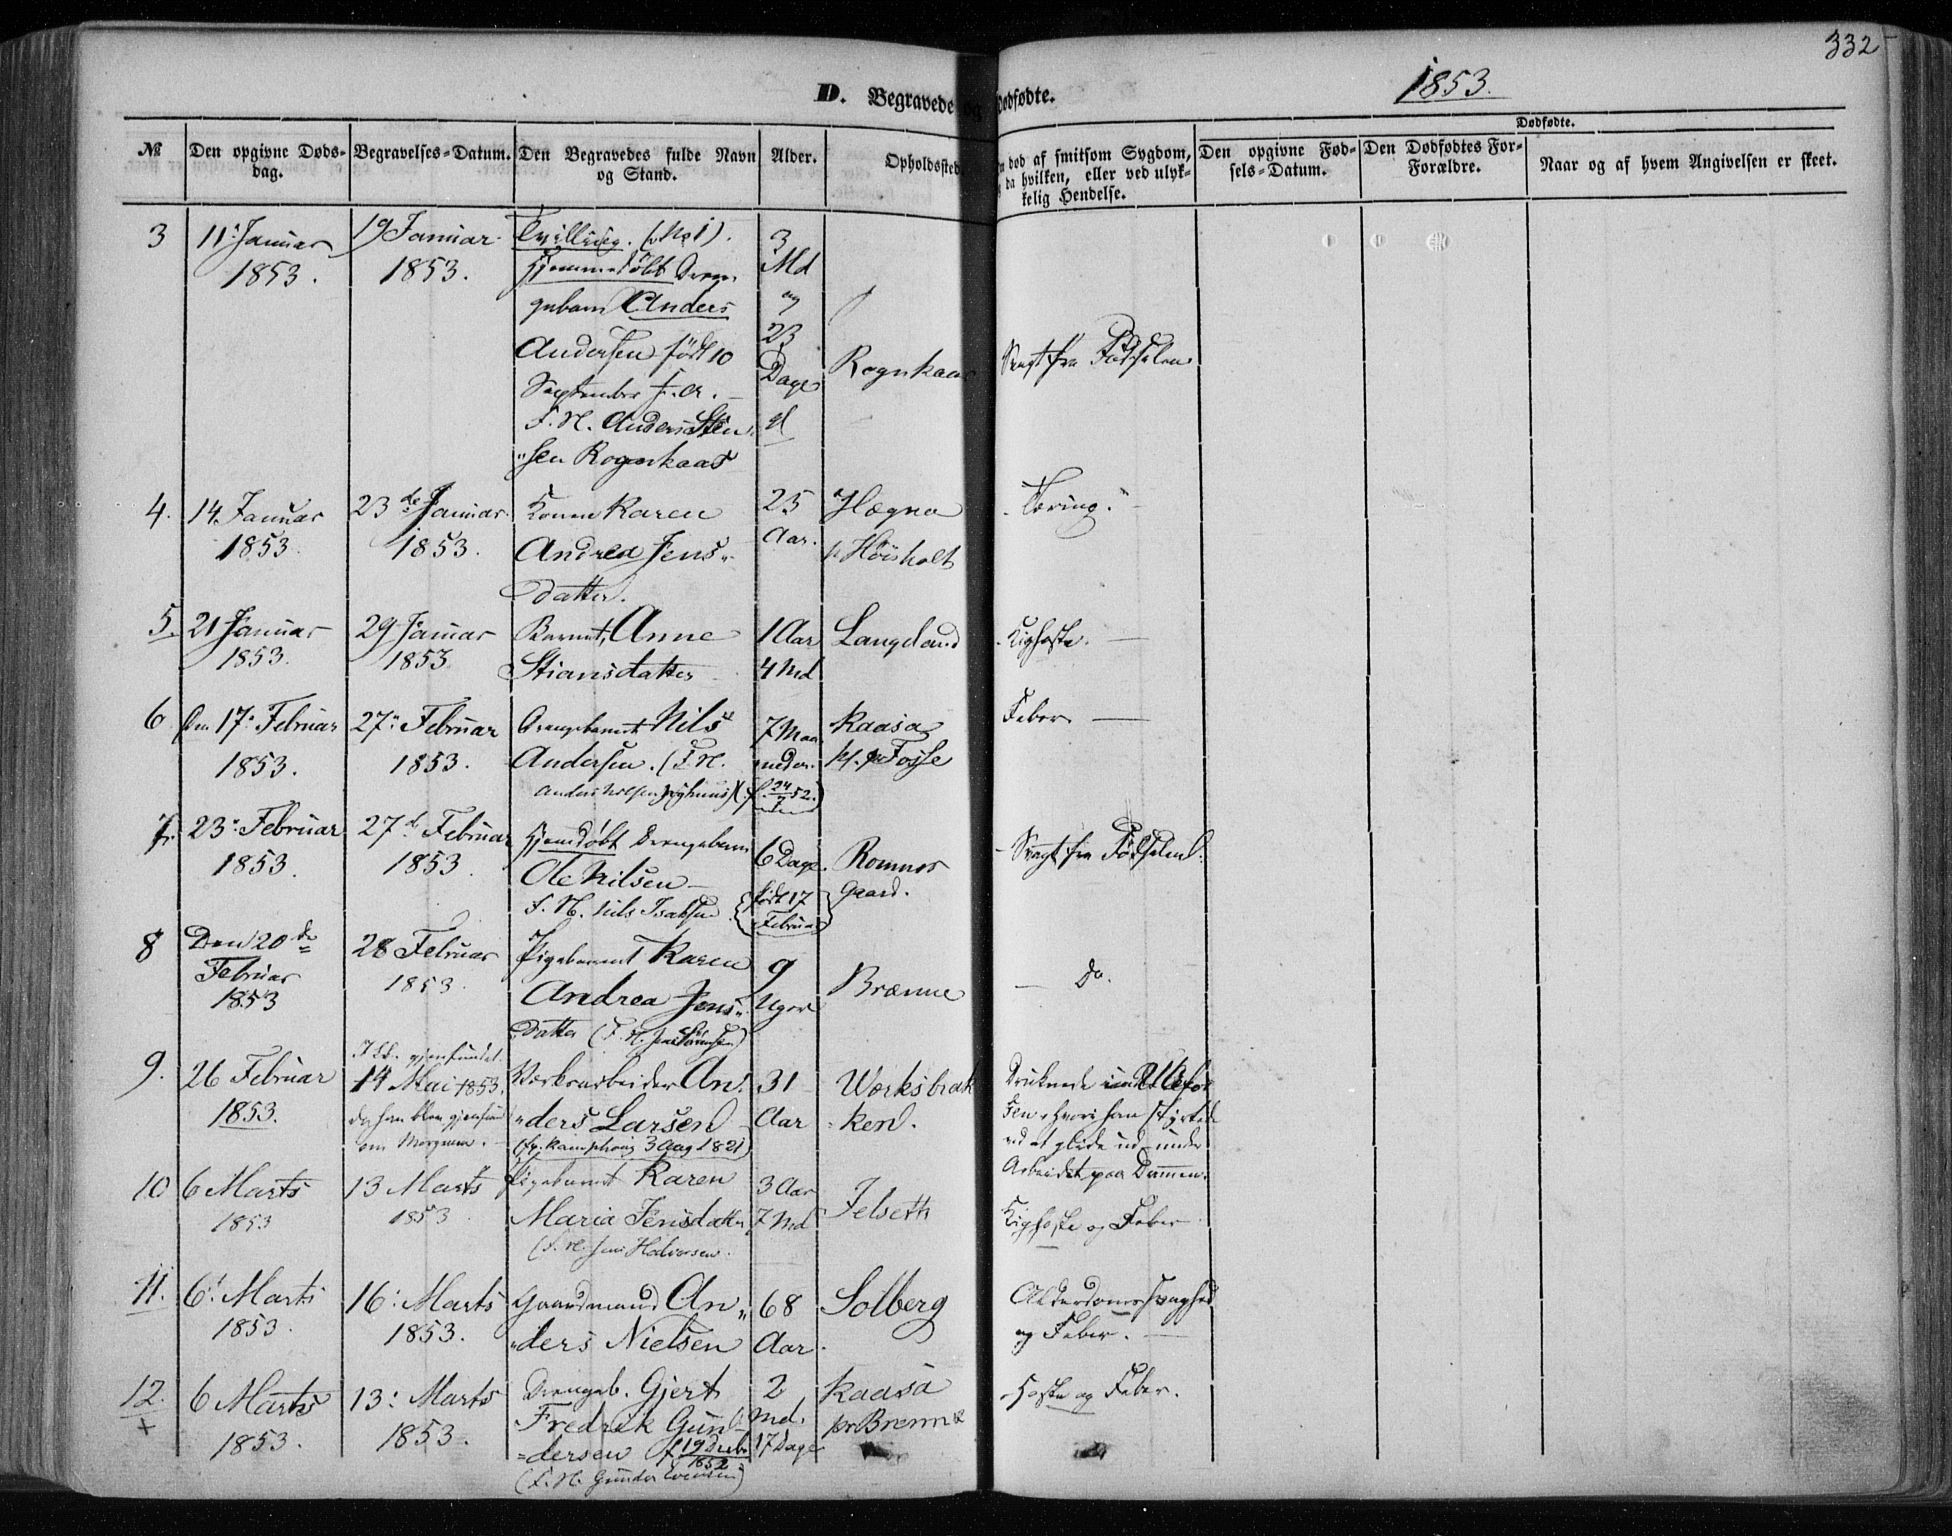 332
1853.
D. Begravede og Dødfødte.
Dødfødte.
№
Den opgivne Døds-
dag.
Begravelses-Datum.
Den Begravedes fulde Navn
og Stand.
Alder.
Opholdssted
død af smitsom Sygdom,
da hvilken, eller ved ulyk-
kelig Hendelse.
Den opgivne Fød-
sels-Datum.
Den Dødfødtes For-
Forældre.
Naar og af hvem Angivelsen er skeet.
3
11: Januar
1853.
19 Januar
1853.
Tvilling. (No 1).
hjemmedøbt Dren-
gebarn Anders
Andersen født 10
September f. A.
F. N. Anders Sten
"sen Rognkaas
3
Md
og
23
Dage
gl
Rognkaas
Svagt fra Fødselen
4.
14. Januar
1853.
23de Januar
1853.
Konen Karen
Andrea Jens"
datter.
25
Aar.
Hægna
p. Høisholt
Tæring.
5.
21 Januar
1853.
29 Januar
1853
Barnet, Anne
Stiansdatter
1 Aar
4 Md
Langeland
Kighoste.
6.
Den 17: Februar
1853.
27: Februar
1853.
Drengebarnet Nils
Andersen. (F. N.
Anders
7 Maa
neder.
(f. 24/7 52.)
Kaasa
Fosse
Feber.
7.
23: Februar
1853.
27d Februar
1853.
hjemdøbt Drengebarn
Ole Nilsen
F. N. Nils Isaksen
6 Dage.
født 17
Februar
Romnes
Gaard.
Svagt fra Fødselen.
8
Den 20de
Februar
1853
28 Februar
1853.
Pigebarnet Karen
Andrea Jens"
Datter (F. N. Jens Sørensen)
9
Uger
Brænne
Do.
9.
26 Februar
1853.
gjenfundet
14 Mai 1853.
da han blev gjenfund
om Morgenen.
Værksarbeider An"
"ders Larsen
3 Aug 1821)
31
Aar
Værksbrak
ken.
Druknede
hvori han styrtede
ved at glide ud under
Arbeidet paa Dammen.
10
6 Marts
1853
13 Marts
1853
Pigebarnet Karen
Maria Jensdatter
(F. N. Jens Halvorsen.
3 Aar
7 Md
Jelseth
Kighoste og Feber
11.
6: Marts
1853.
16: Marts
1853.
Gaardmand An"
"ders Nielsen
68
Aar.
Solberg
Alderdomssvaghed
og Feber.
12.
+
6 Marts
1853.
13: Marts
1853.
Drengeb. Gjert
Fredrik Gun-
=dersen f. 19 Decbr
1852
(F. N. Gunder Evensen)
2
Md.
17 Dage
Kaasa
Hoste og Feber.